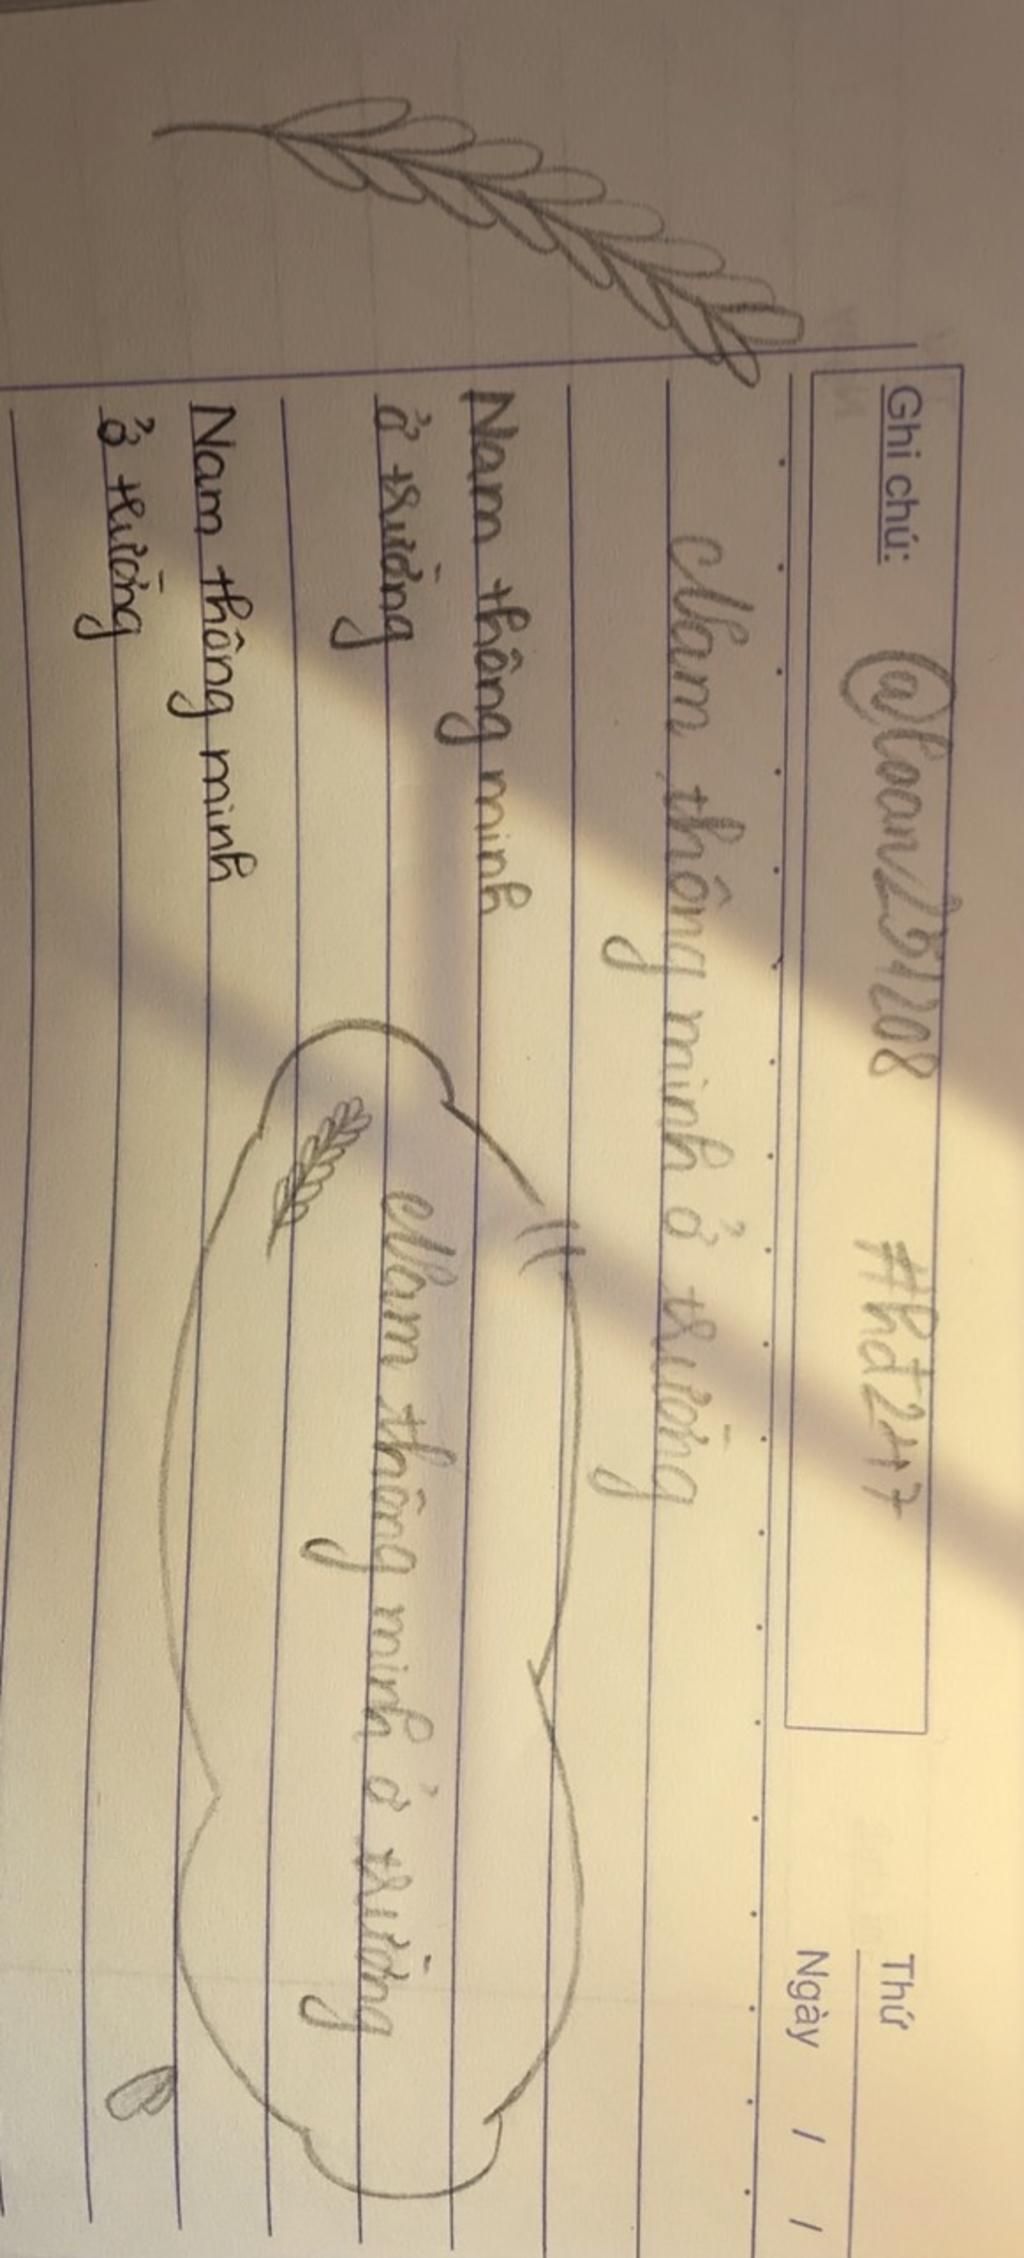 Ghi chú: @loan231208 #hd247
Thứ
Ngày / /
Nam thông minh ở trường
Nam thông minh
ở trường
Nam thông minh ở trường
Nam thông minh
ở trường